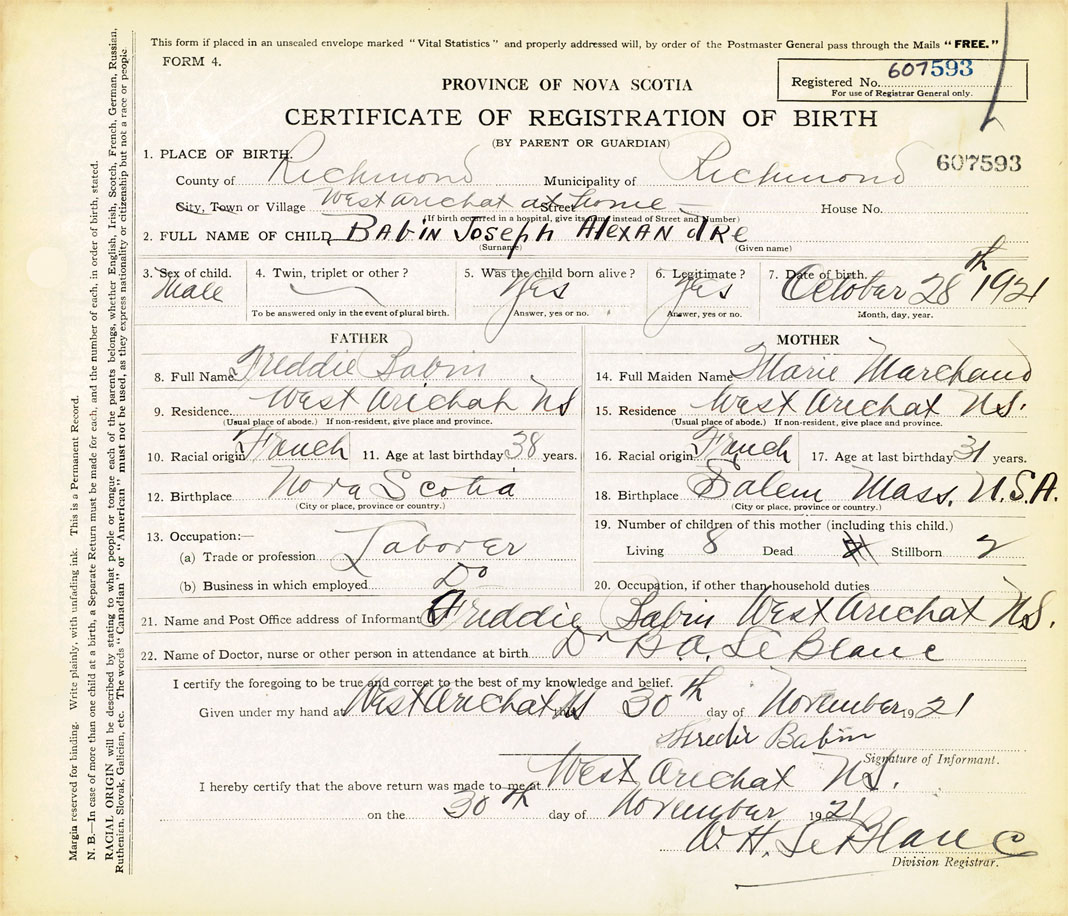 This form if placed in an unsealed envelope marked "Vital Statistics" and properly addressed will, by order of the Postmaster General pass through the Mails "FREE."
FORM 4.
Registered No. 607593
For use of Registrar General only.
PROVINCE OF NOVA SCOTIA
CERTIFICATE OF REGISTRATION OF BIRTH
(BY PARENT OR GUARDIAN)
607593
1. PLACE OF BIRTH.
County of Richmond Municipality of Richmond
City, Town or Village West Arichat Street at home House No.
(If birth occurred in a hospital, give its name instead of Street and Number)
2. FULL NAME OF CHILD Babin Joseph Alexandre
(Surname) (Given name)
3. Sex of child. 4. Twin, triplet or other? 5. Was the child born alive? 6. Legitimate? 7. Date of birth.
Male Yes Yes October 28th 1921
To be answered only in the event of plural birth. Answer, yes or no. Answer, yes or no. Month, day, year.
FATHER MOTHER
8. Full Name Freddie Babin 14. Full Maiden Name Marie Marchand
9. Residence West Arichat NS 15. Residence West Arichat N.S.
(Usual place of abode.) If non-resident, give place and province. (Usual place of abode.) If non-resident, give place and province.
10. Racial origin French 11. Age at last birthday 38 years. 16. Racial origin French 17. Age at last birthday 31 years.
12. Birthplace Nova Scotia 18. Birthplace Salem Mass, U.S.A.
(City or place, province or country.) (City or place, province or country.)
13. Occupation:— 19. Number of children of this mother (including this child.)
(a) Trade or profession Laborer Living 8 Dead Stillborn 2
(b) Business in which employed Do 20. Occupation, if other than household duties
21. Name and Post Office address of Informant Freddie Babin West Arichat N.S.
22. Name of Doctor, nurse or other person in attendance at birth Dr B.A. LeBlanc
I certify the foregoing to be true and correct to the best of my knowledge and belief.
Given under my hand at West Arichat NS this 30th day of November 1921
Fredie Babin
Signature of Informant.
I hereby certify that the above return was made to me at West Arichat N.S.
on the 30th day of November 1921
W. H. LeBlanc
Division Registrar.
Margin reserved for binding. Write plainly, with unfading ink. This is a Permanent Record.
N. B.—In case of more than one child at a birth, a Separate Return must be made for each, and the number of each, in order of birth, stated.
RACIAL ORIGIN will be described by stating to what people or tongue each of the parents belongs, whether English, Irish, Scotch, French, German, Russian,
Ruthenian, Slovak, Galician, etc. The words "Canadian" or "American" must not be used, as they express nationality or citizenship but not a race or people.